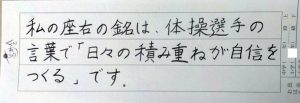 私の座右の銘は、体操選手の
言葉で「日々の積み重ねが自信を
つくる」です。